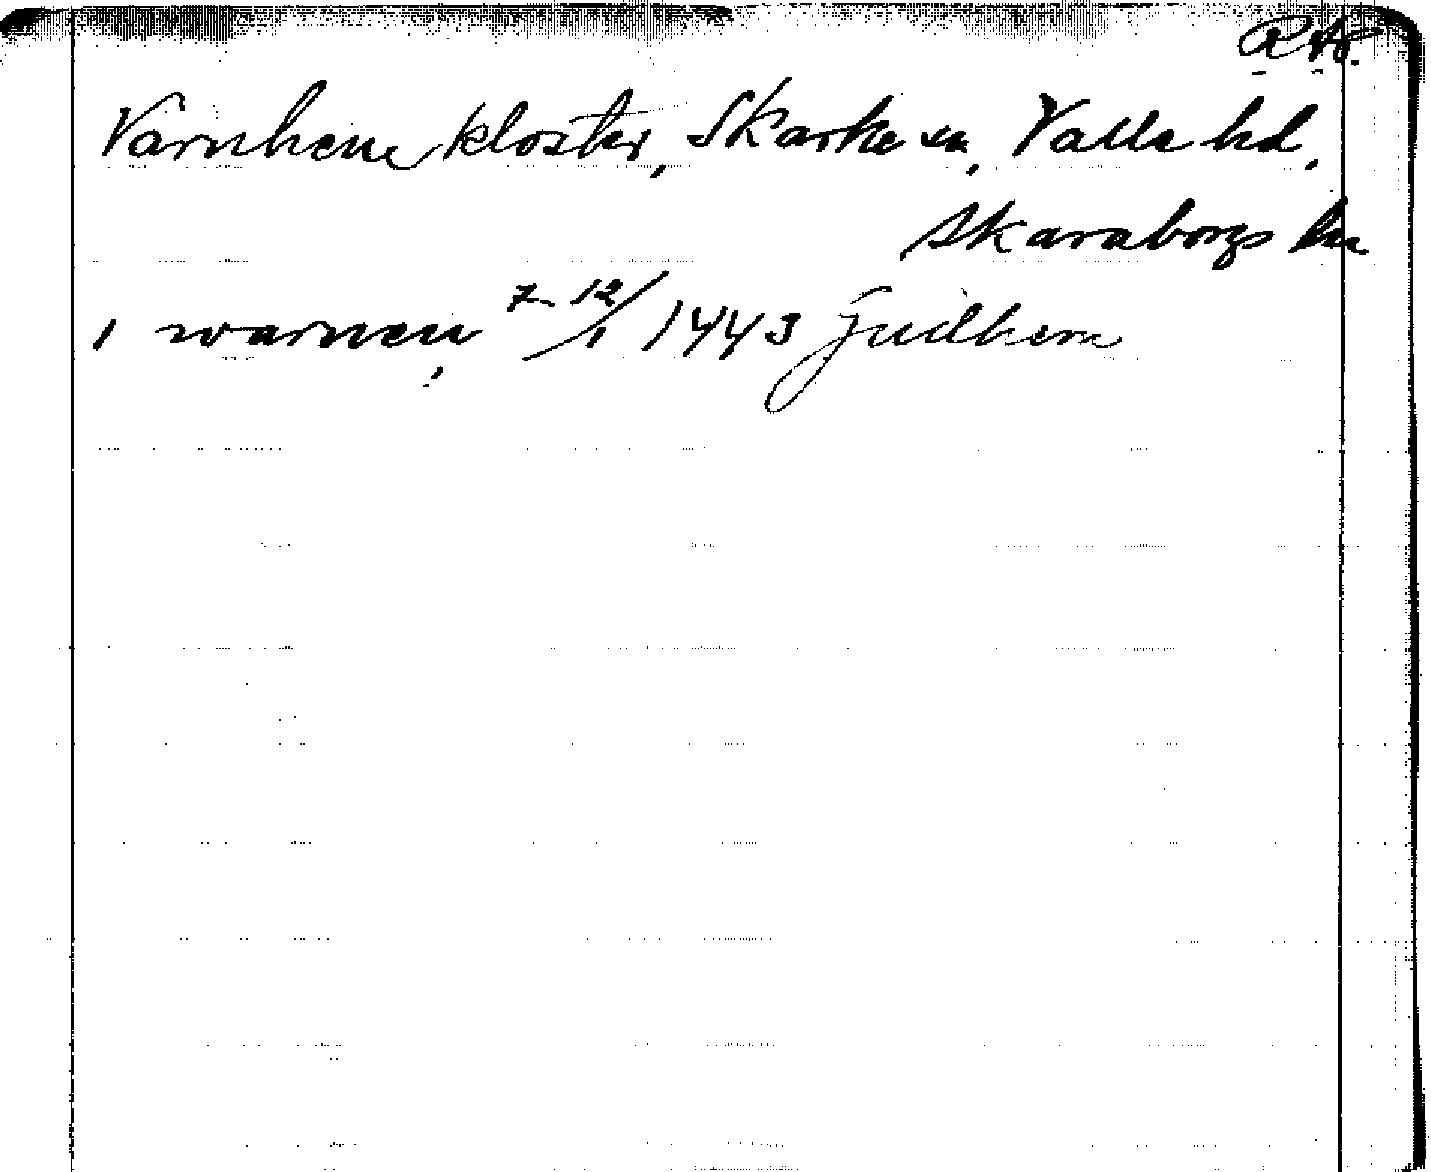 RAp.
Varnhems kloster, Skarke sn, Valle hd,
Skaraborgs län
i warnem, 7-12/1 1443 Gudhem